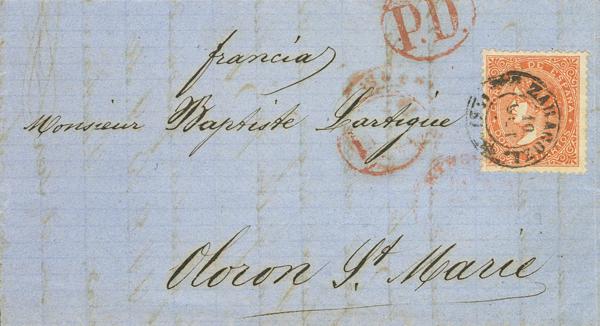 P.D.
francia
Monsieur Baptiste Lartigue
ZARAGOZA
DE ESPAÑA
Oloron St Marie